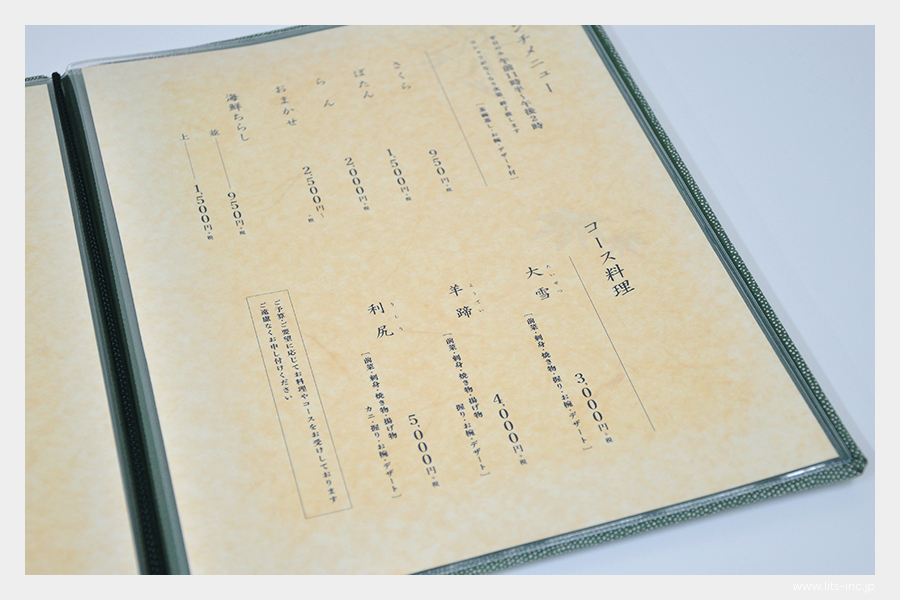 ンチメニュー
午前11時半~午後2時
終了致します
〔茶碗蒸し・お椀・デザート付〕
さくら 950円+税
ぼたん 1,500円+税
らん 2,000円+税
おまかせ 2,500円~+税
海鮮ちらし
並 950円+税
上 1,500円+税
コース料理
大雪 たいせつ 3,000円+税
〔前菜・刺身・焼き物・握り・お椀・デザート〕
羊蹄 ようてい 4,000円+税
〔前菜・刺身・焼き物・揚げ物
握り・お椀・デザート〕
利尻 りしり 5,000円+税
〔前菜・刺身・焼き物・揚げ物
カニ・握り・お椀・デザート〕
ご予算・ご要望に応じてお料理やコースをお受けしております
ご遠慮なくお申し付けください
www.lits-inc.jp